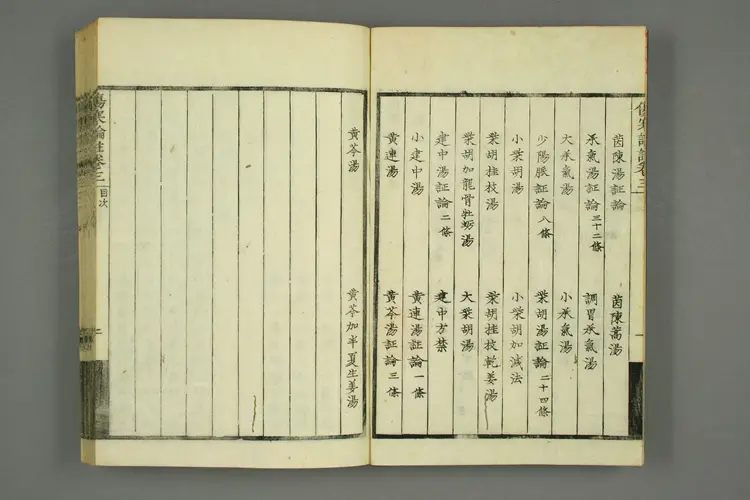 傷寒論註卷三
茵陳湯証論 茵陳蒿湯
承氣湯証論三十二條 調胃承氣湯
大承氣湯 小承氣湯
少陽脈証論八條 柴胡湯証論二十四條
小柴胡湯 小柴胡加減法
柴胡桂枝湯 柴胡桂枝乾姜湯
柴胡加龍骨牡蛎湯 大柴胡湯
建中湯証論二條 建中方禁
小建中湯 黃連湯証論一條
黃連湯 黃芩湯証論三條
黃芩湯 黃芩加半夏生姜湯
傷寒論註卷三 目次 二